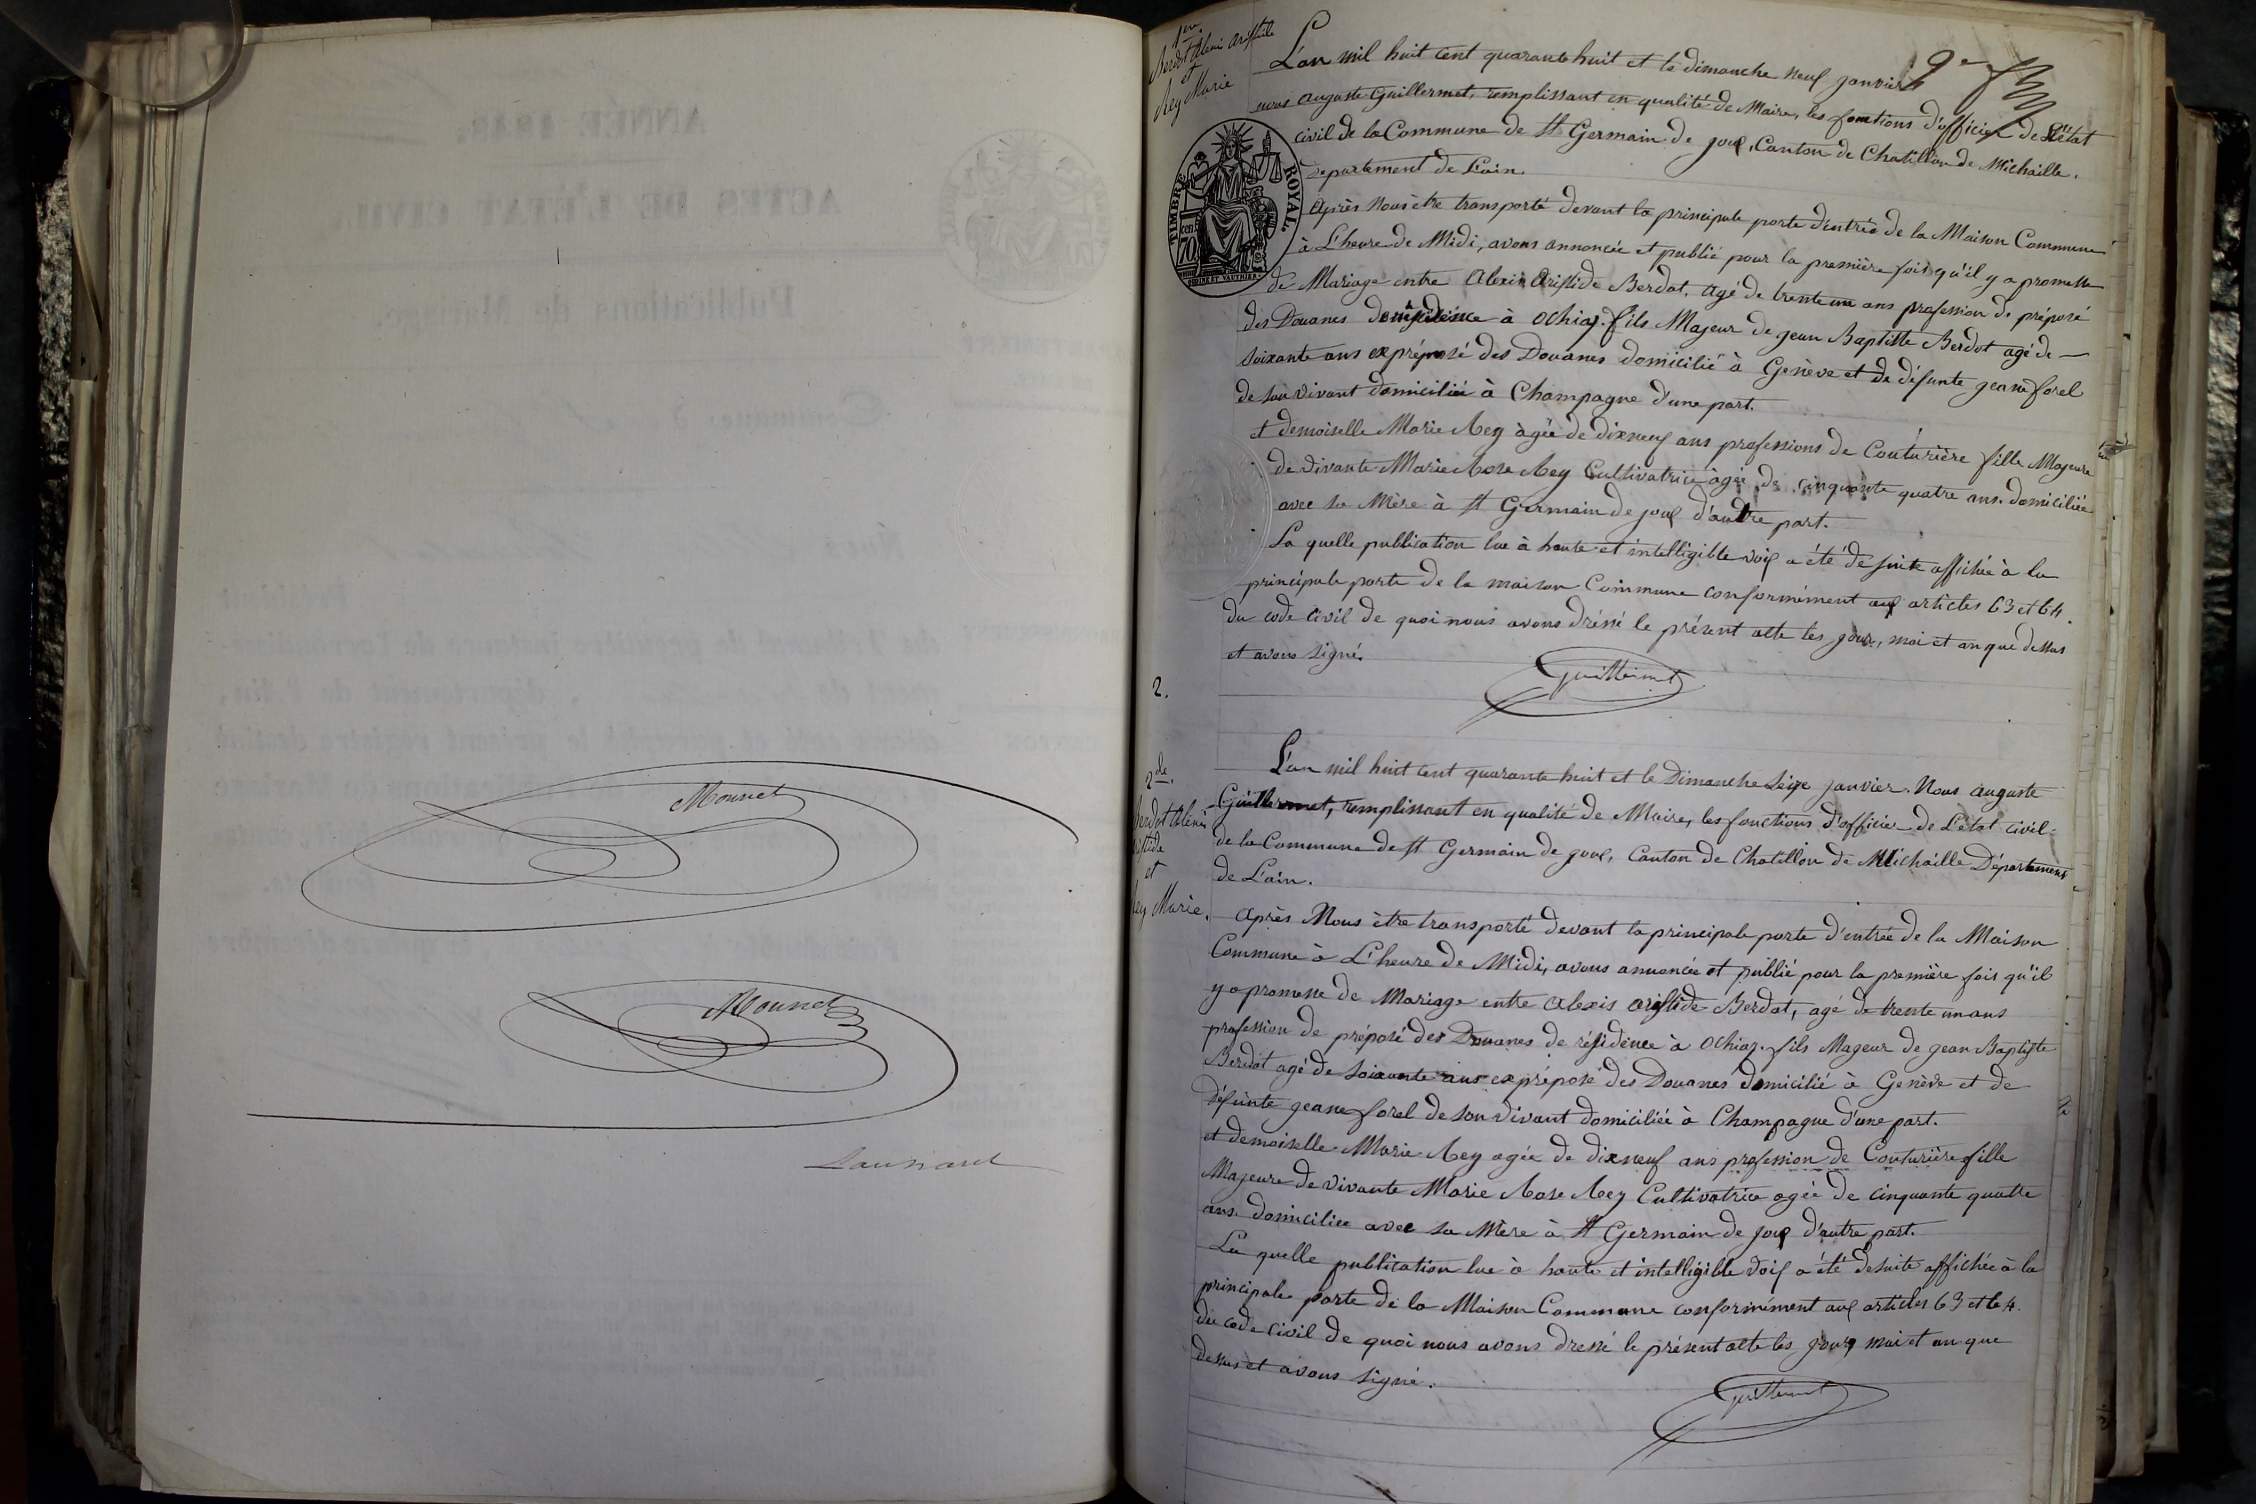 Mounet
Mounet
1ère
Berdot Alexis Aristide
et
Rey Marie
L'an mil huit cent quarante huit et le dimanche neuf janvier
nous auguste Guillermet, remplissant en qualité de Maire, les fonctions d'officier de L'état
civil de la Commune de St Germain de joux, Canton de Chatillon de Michaille,
Département de L'ain.
TIMBRE ROYAL
70
cen.
Après Nous être transporté devant la principale porte d'entrée de la Maison Commune
à L'heure de Midi, avons annoncée et publié pour la première fois qu'il y a promesse
de Mariage entre Alexis Aristide Berdot, agé de trente un ans profession de préposé
des Douanes de résidence à Ochiaz. fils Majeur de jean Baptiste Berdot agé de
soixante ans expréposé des Douanes domicilié à Genève et de défunte jeane forel
de son vivant domiciliée à Champagne d'une part.
et demoiselle Marie Rey âgée de dixneuf ans professions de Couturière fille Majeure
de vivante Marie Rose Rey Cultivatrice âgée de cinquante quatre ans. domiciliée
avec sa Mère à St Germain de joux d'autre part.
La quelle publication lue à haute et intelligible voix a été de suite affichée à la
principale porte de la maison Commune conformément aux articles 63 et 64.
du code Civil de quoi nous avons dréssé le présent acte les jour, moi et an que dessus
et avons signé.
Guillermet
2.
2de.
Berdot Alexis
Aristide
et
Rey Marie.
L'an mil huit cent quarante huit et le Dimanche Seize janvier. Nous auguste
Guillermet, remplissant en qualité de Maire, les fonctions d'officier de L'état civil
de la Commune de St Germain de joux, Canton de Chatillon de Michaille Département
de L'ain.
Après Nous être transporté devant la principale porte d'entrée de la Maison
Commune à L'heure de Midi, avons annoncée et publié pour la première fois qu'il
y a promesse de Mariage entre Alexis aristide Berdot, agé de trente un ans
profession de préposé des Douanes de résidence à Ochiaz. fils Mageur de gean Baptiste
Berdot agé de soixante ans expréposé des Douanes domicilié à Genève et de
défunte geane forel de son vivant domiciliée à Champagne d'une part.
et demoiselle Marie Rey agée de dixneuf ans profession de Couturière fille
Majeure de vivante Marie Rose Rey Cultivatrice agée de cinquante quatre
ans. domiciliée avec sa Mère à St Germain de joux d'autre part.
La quelle publication lue à haute et intelligible voix a été desuite affichée à la
principale porte de la Maison Commune conformément aux articles 63 et 64.
du code civil de quoi nous avons dressé le présent acte les jour, moi et an que
dessus et avons signé.
Guillermet